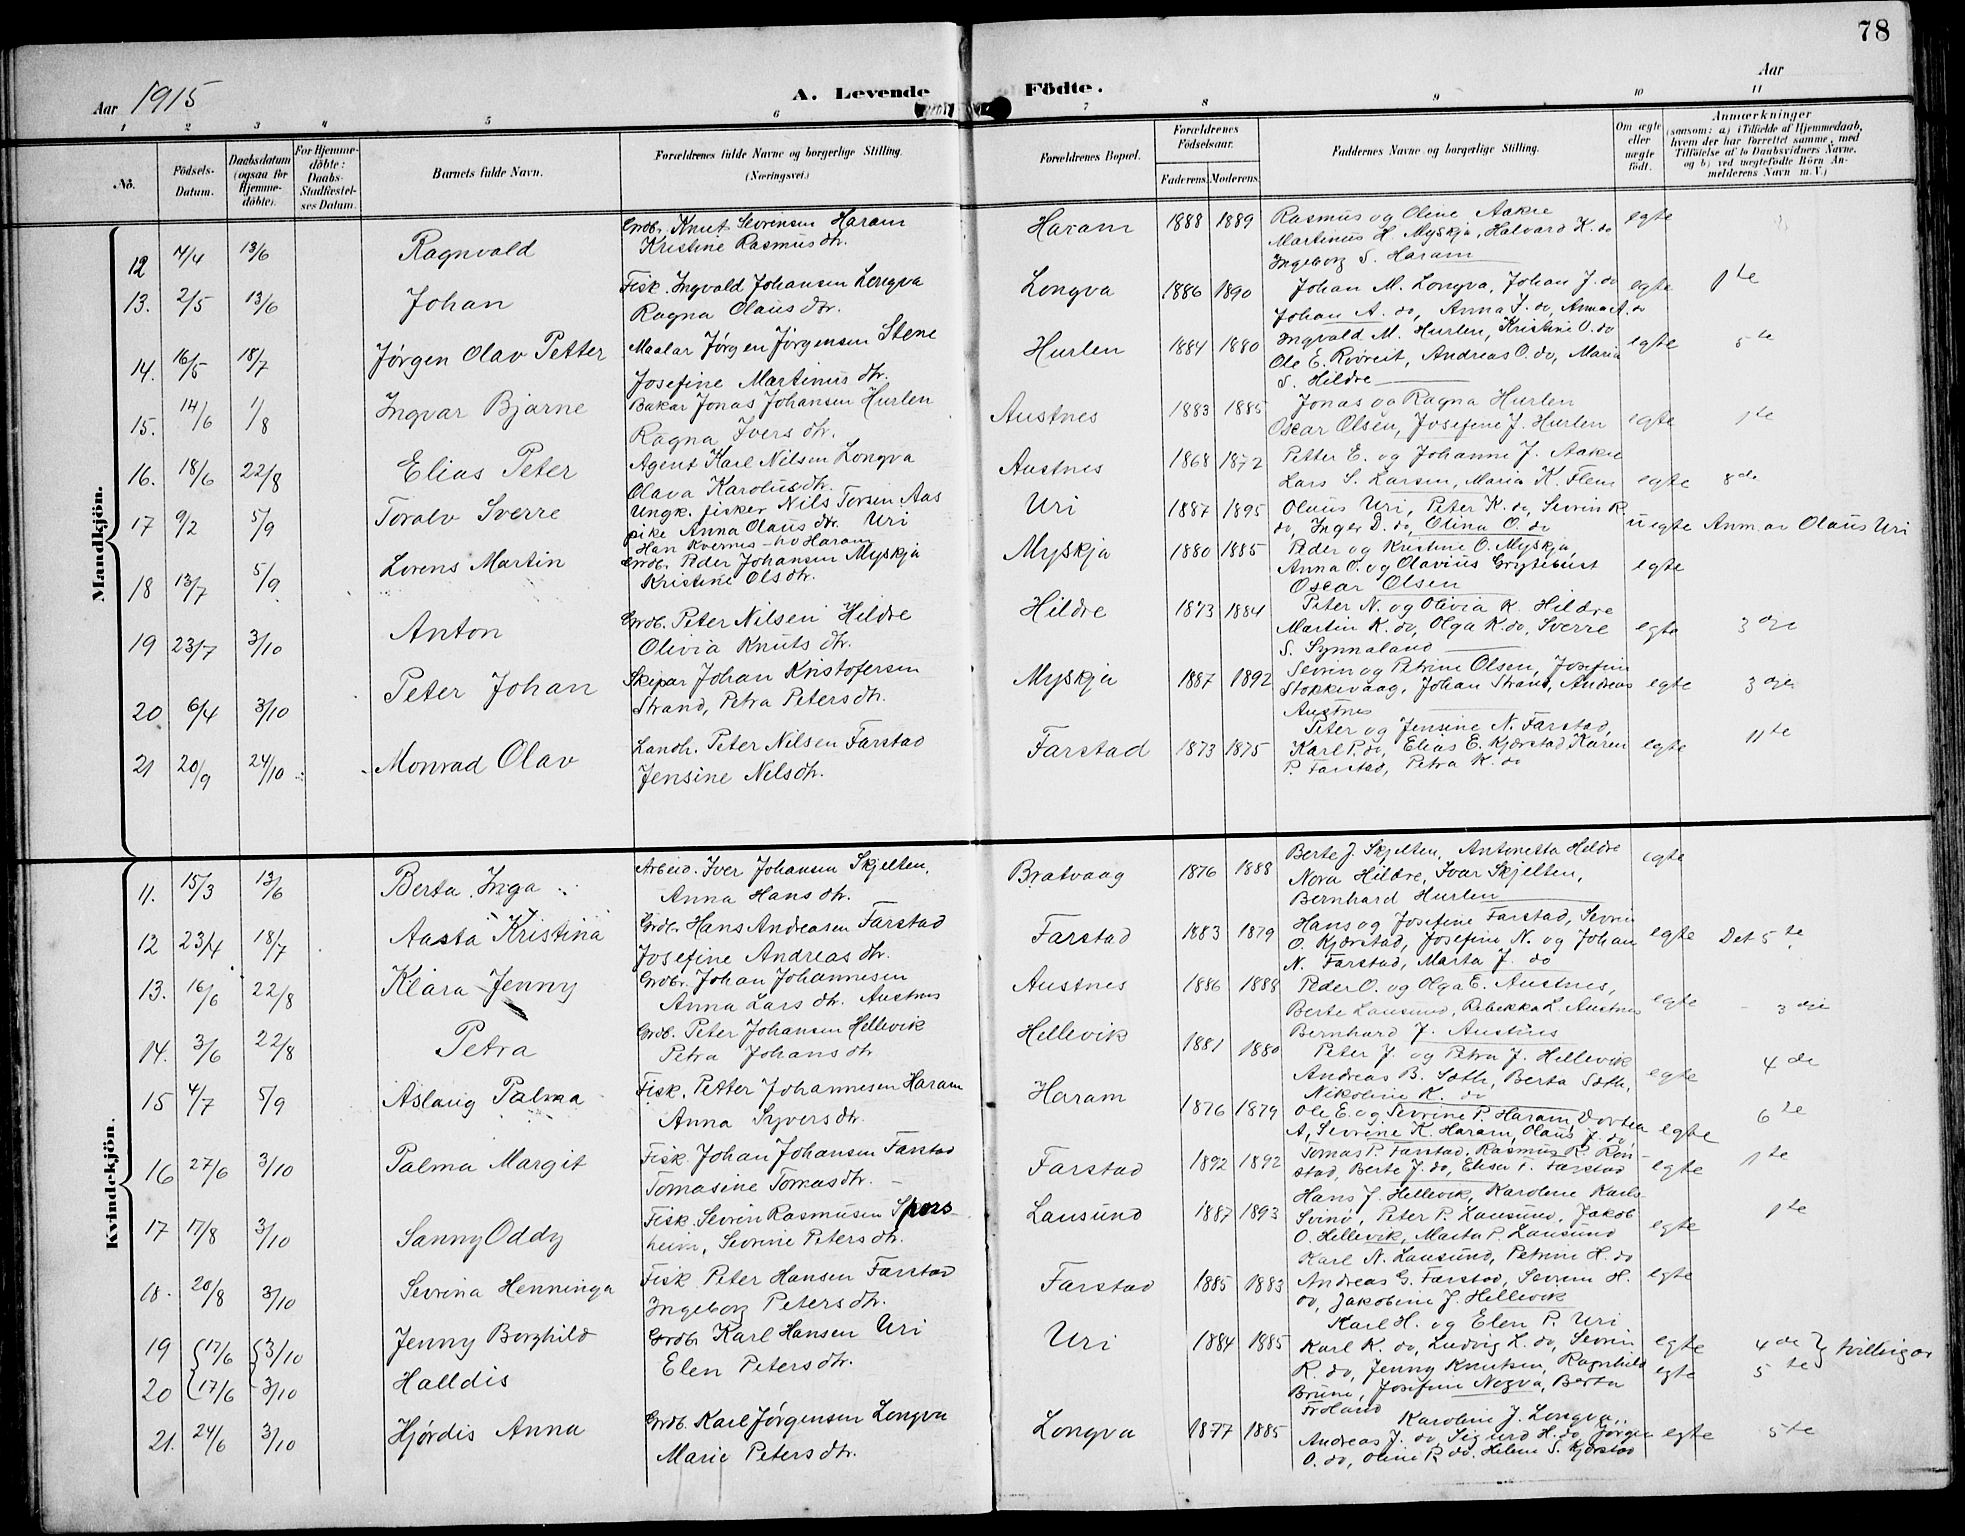 78
Aar 1915
A. Levende Födte.
Aar
1 2 3 4 5 6 7 8 9 10 11
No.
Födsels-Datum.
Daabsdatum (ogsaa for Hjemme-döbte).
For Hjemme-döbte: Daabs-Stadfæstel-ses Datum.
Barnets fulde Navn.
Forældrenes fulde Navne og borgerlige Stilling. (Næringsvei.)
Forældrenes Bopæl.
Forældrenes Födselsaar.
Faderens. Moderens.
Faddernes Navne og borgerlige Stilling.
Om ægte eller uægte födt.
Anmærkninger (saasom: a) i Tilfælde af Hjemmedaab, hvem der har forrettet samme, med Tilföielse af to Daabsvidners Navne, og b) ved uægtefödte Börn Anmelderens Navn m.V.)
Mandkjön.
12 4/4 13/6 Ragnvald Grdb. Knut Sevrensen Haram Kristine Rasmusdtr. Haram 1888 1889 Rasmus og Oline Aakre Martinus H. Myskja, Halvard K. do Ingeborg S. Haram egte
13. 2/5 13/6 Johan Fisk. Ingvald Johansen Longva Ragna Olausdtr. Longva 1886 1890 Johan M. Longva, Johan J. do Johan A. do, Anna J. do, Anna A. do egte 1te
14. 16/5 18/7 Jørgen Olav Petter Maalar Jørgen Jørgensen Stene Josefine Martinusdtr. Hurlen 1884 1880 Ingvald M. Hurlen, Kristine O. do Ole E. Rovreit, Andreas O. do, Maria S. Hildre egte 5te
15. 14/6 1/8 Ingvar Bjarne Bakar Jonas Johansen Hurlen Ragna Iversdtr. Austnes 1883 1885 Jonas og Ragna Hurlen Oscar Olsen, Josefine J. Hurlen egte 1te
16. 18/6 22/8 Elias Peter Agent Karl Nilsen Longva Olava Karolusdtr. Austnes 1868 1872 Petter E. og Johanne J. Aakre Lars S. Larsen, Maria K. Flem egte 8de
17 9/2 5/9 Toralv Sverre Ungk. fisker Nils Torsen Aas pike Anna Olausdtr. Uri Han Kvernes - ho Haram Uri 1887 1895 Olaus Uri, Peter K. do, Sevrin R. do, Inger D. do, Olina O. do uegte Anm. av Olaus Uri
18 13/7 5/9 Lorens Martin Grdb. Peder Johansen Myskja Kristine Olsdtr. Myskja 1880 1885 Peder og Kristine O. Myskja, Anna O. og Olavius Grytebust Oscar Olsen egte
19 23/7 3/10 Anton Grdb. Peter Nilsen Hildre Olivia Knutsdtr. Hildre 1873 1884 Peter N. og Olivia K. Hildre Martin K. do, Olga K. do, Sverre S. Synnaland egte 3dje
20 6/4 3/10 Peter Johan Skipar Johan Kristofersen Strand, Petra Petersdtr. Myskja 1887 1892 Sevrin og Petrine Olsen, Josefine Stokkevaag, Johan Strand, Andreas Austnes egte 3dje
21 20/9 24/10 Monrad Olav Landh. Peter Nilsen Farstad Jensine Nilsdtr. Farstad 1873 1875 Peter og Jensine N. Farstad, Karl P. do, Elias E. Kjørstad Karen P. Farstad, Petra K. do egte 11te
Kvindekjön.
11. 15/3 13/6 Berta Inga Arbeid. Iver Johansen Skjelten, Anna Hansdtr. Bratvaag 1876 1888 Berte J. Skjelten, Antonetta Hildre Nora Hildre, Ivar Skjelten, Bernhard Hurlen egte
12 23/4 18/7 Aasta Kristina Grdb. Hans Andreasen Farstad Josefine Andreasdtr. Farstad 1883 1879 Hans og Josefine Farstad, Sevrin O. Kjørstad, Josefine N. og Johan N. Farstad, Marta J. do egte Det 5te
13. 16/6 22/8 Klara Jenny Grdbr. Johan Johannesen Anna Larsdtr. Austnes Austnes 1886 1888 Peder O. og Olga E. Austnes, Berte Lausund, Rebekka L. Austnes Bernhard J. Austnes egte 3die
14. 3/6 22/8 Petra Grdb. Peter Johansen Hellevik Petra Johansdtr Hellevik 1881 1880 Peter J. og Petra J. Hellevik Andreas B. Sæth, Berta Sæth, Nikoline K. do egte 4de
15 4/7 5/9 Aslaug Palma Fisk. Petter Johannesen Haram Anna Syversdtr. Haram 1876 1879 Ole E. og Sevrine P. Haram, Dortea A, Sevrine K. Haram, Olaus J. do egte 6te
16 27/6 3/10 Palma Margit Fisk. Johan Johansen Farstad Tomasine Tomasdtr. Farstad 1892 1892 Tomas P. Farstad, Rasmus R. Ronstad, Berte J. do, Elisa T. Farstad egte 1te
17 17/8 3/10 Sanny Oddy Fisk. Sevrin Rasmusen Sporsheim, Sevrine Petersdtr. Lausund 1887 1893 Hans J. Hellevik, Karoline Karls. Svinø, Peter P. Lausund, Jakob O. Hellevik, Marta P. Lausund egte 1te
18. 20/8 3/10 Sevrina Henninga Fisk. Peter Hansen Farstad Ingeborg Petersdtr. Farstad 1885 1883 Karl N. Lausund, Petrine H. do Andreas G. Farstad, Severin H. do, Jakobine J. Hellevik egte
19 17/6 3/10 Jenny Borghild Grdb. Karl Hansen Uri Elen Petersdtr. Uri 1884 1885 Karl H. og Elen P. Uri Karl K. do, Ludvig L. do, Sevrin egte 4de
20 17/6 3/10 Halldis R. do, Jenny Knutsen, Ragnhild Brune, Josefine Nogva, Berta Froland egte 5te tvillingar
21. 24/6 3/10 Hjørdis Anna Grdb. Karl Jørgensen Longva Marie Petersdtr. Longva 1877 1885 Karoline J. Longva, Andreas J. do, Sigurd H. do, Jørgen O. do, Oline R. do, Helene S. Kjørstad egte 5te